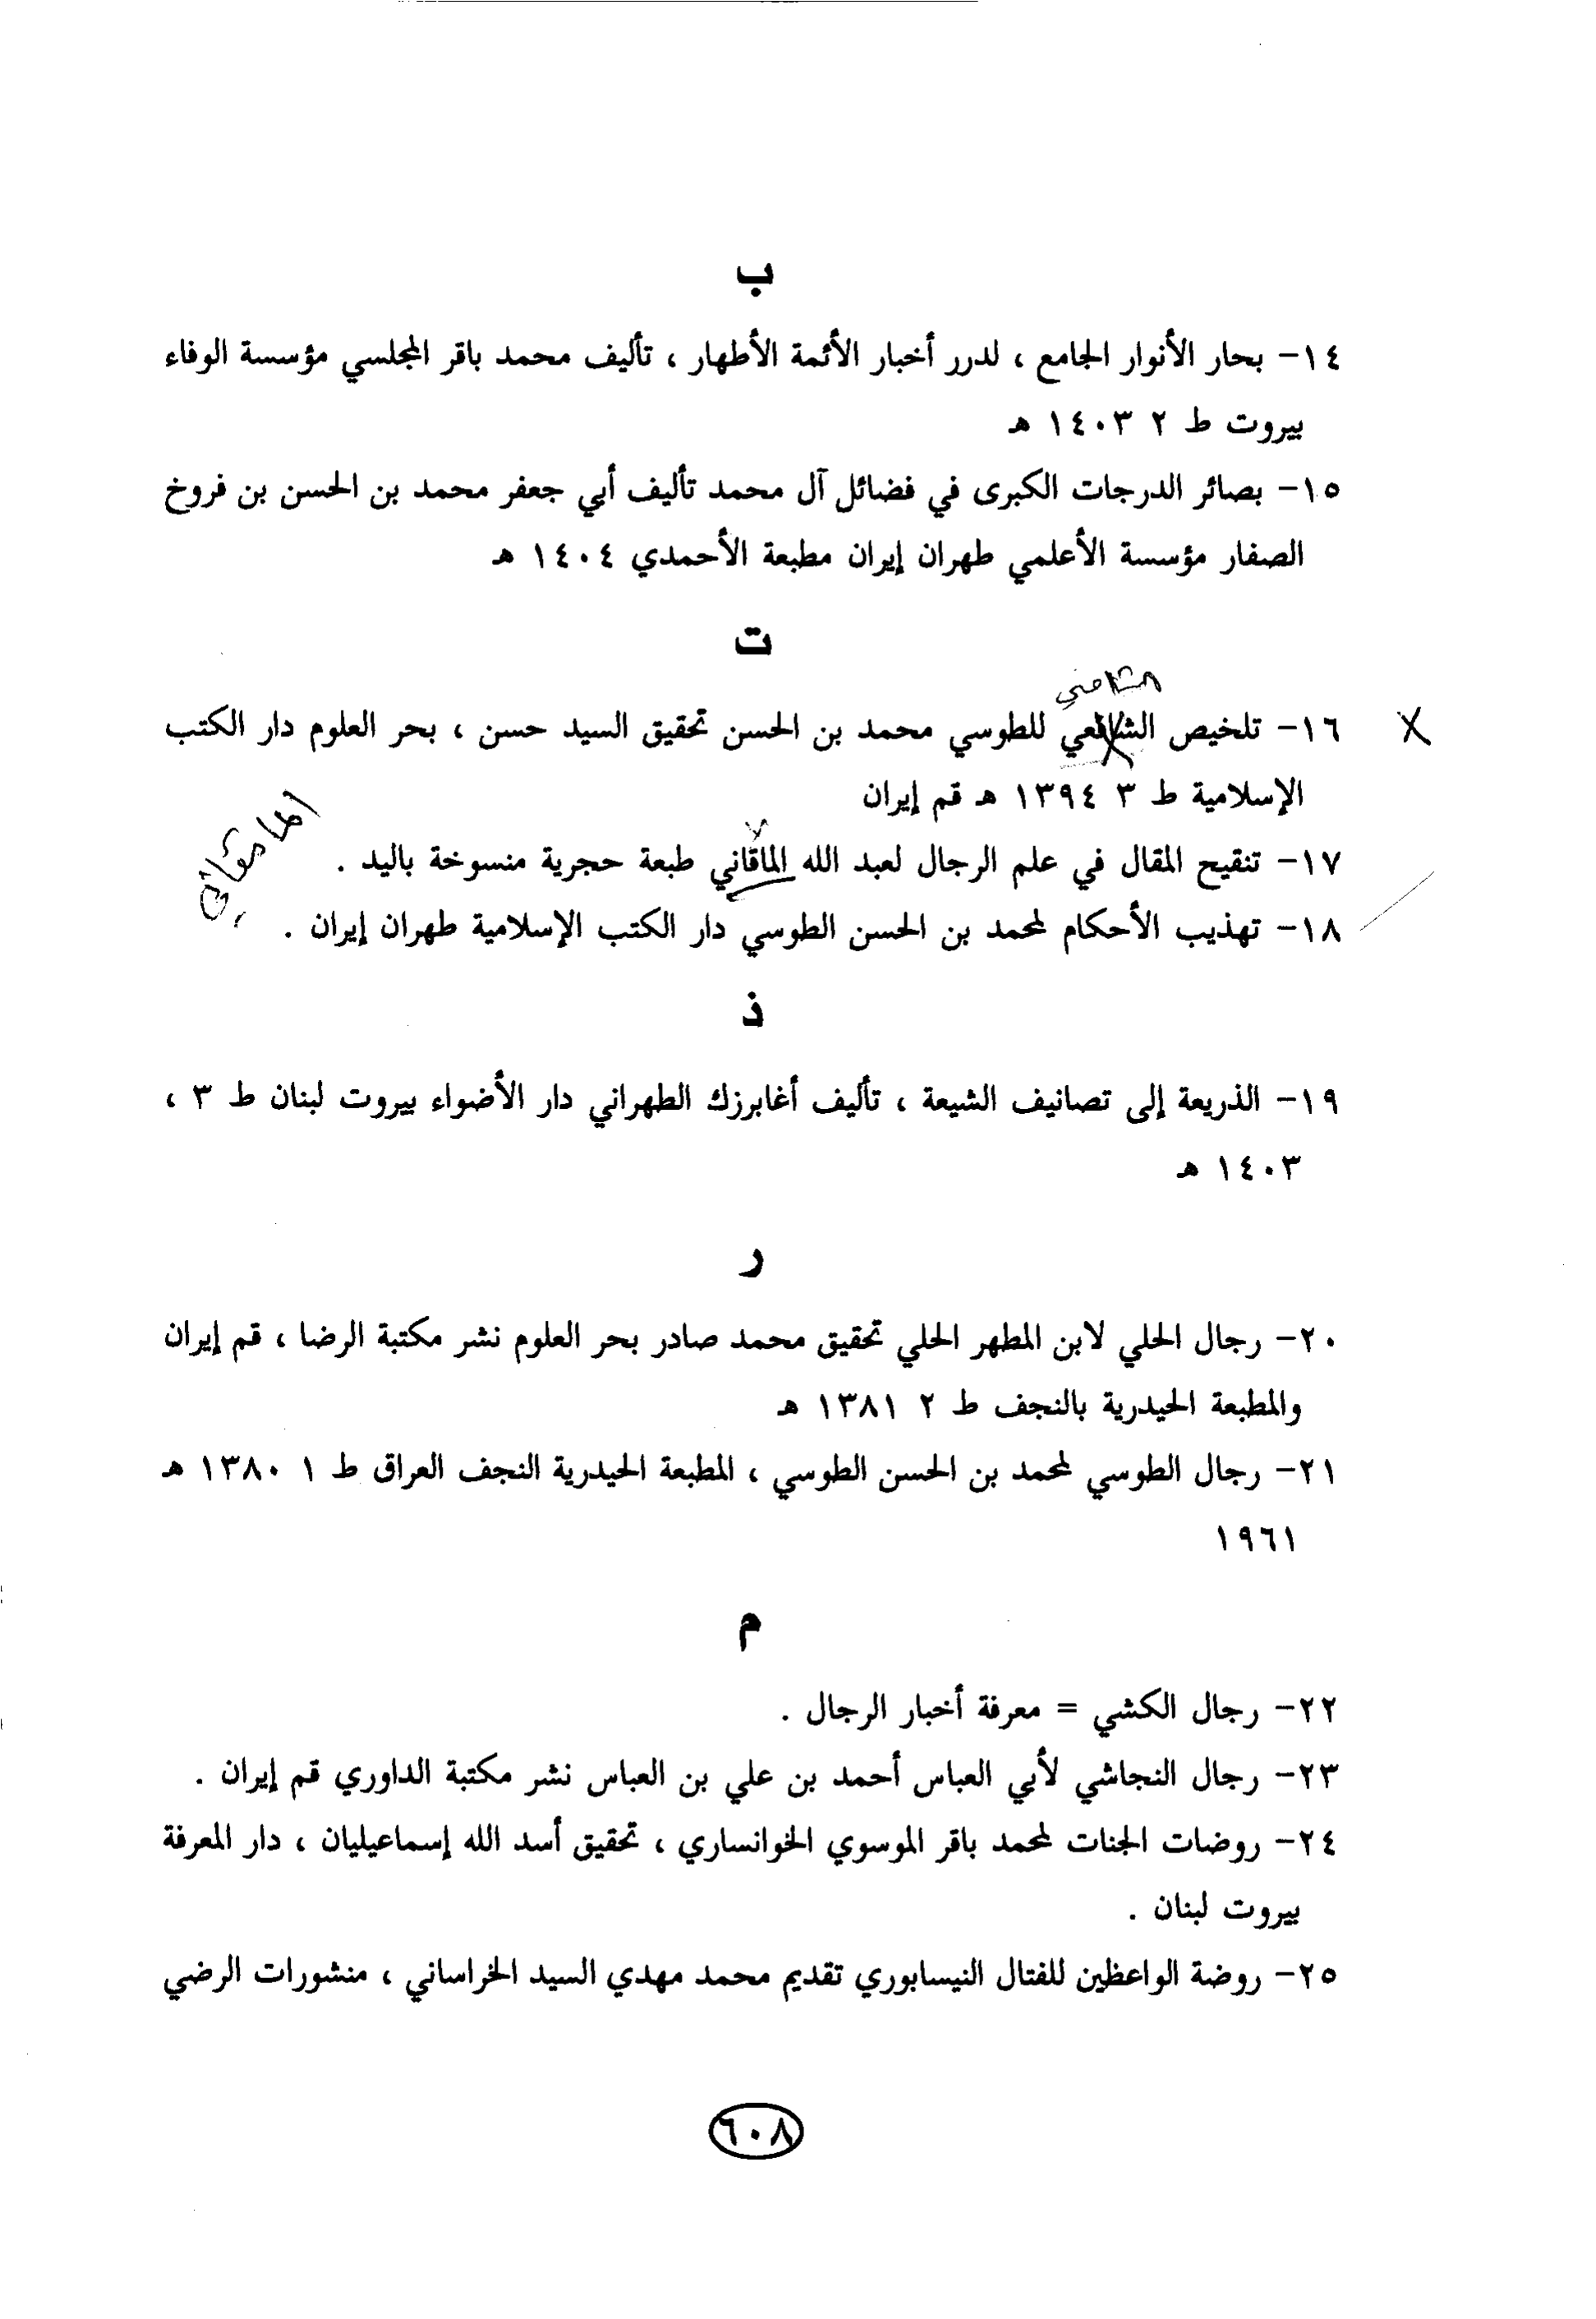 ب
١٤- بحار الأنوار الجامع ، لدرر أخبار الأئمة الأطهار ، تأليف محمد باقر المجلسي مؤسسة الوفاء
بيروت ط ٢ ١٤٠٣ هـ
١٥- بصائر الدرجات الكبرى في فضائل آل محمد تأليف أبي جعفر محمد بن الحسن بن فروخ
الصفار مؤسسة الأعلمي طهران إيران مطبعة الأحمدي ١٤٠٤ هـ
ت
١٦- تلخيص الشافعي للطوسي محمد بن الحسن تحقيق السيد حسن ، بحر العلوم دار الكتب
الإسلامية ط ٣ ١٣٩٤ هـ قم إيران
المامقاني
١٧- تنقيح المقال في علم الرجال لعبد الله الماقاني طبعة حجرية منسوخة باليد .
١٨- تهذيب الأحكام لمحمد بن الحسن الطوسي دار الكتب الإسلامية طهران إيران .
ذ
١٩- الذريعة إلى تصانيف الشيعة ، تأليف أغابرزك الطهراني دار الأضواء بيروت لبنان ط ٣ ،
١٤٠٣ هـ
ر
٢٠- رجال الحلي لابن المطهر الحلي تحقيق محمد صادر بحر العلوم نشر مكتبة الرضا ، قم إيران
والمطبعة الحيدرية بالنجف ط ٢ ١٣٨١ هـ
٢١- رجال الطوسي لمحمد بن الحسن الطوسي ، المطبعة الحيدرية النجف العراق ط ١ ١٣٨٠ هـ
١٩٦١
م
٢٢- رجال الكشي = معرفة أخبار الرجال .
٢٣- رجال النجاشي لأبي العباس أحمد بن علي بن العباس نشر مكتبة الداوري قم إيران .
٢٤- روضات الجنات لمحمد باقر الموسوي الخوانساري ، تحقيق أسد الله إسماعيليان ، دار المعرفة
بيروت لبنان .
٢٥- روضة الواعظين للفتال النيسابوري تقديم محمد مهدي السيد الخراساني ، منشورات الرضي
٦٠٨